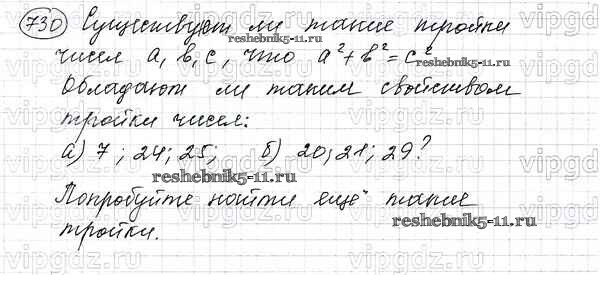 730 Существуют ли такие тройки
чисел a, b, c, что a² + b² = c²
reshebnik5-11.ru
Обладают ли таким свойством
тройки чисел:
а) 7; 24; 25; б) 20; 21; 29?
reshebnik5-11.ru
Попробуйте найти ещё такие
reshebnik5-11.ru
тройки.